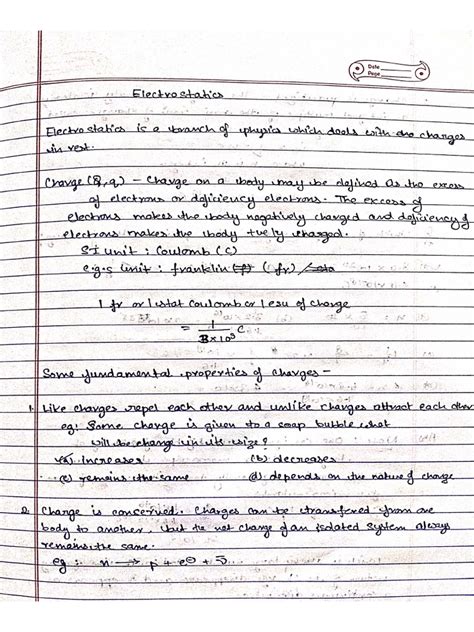 Date
Page
Electrostatics
Electrostatics is a branch of physics which deals with the charges
in rest.
Charge (Q, q) - Charge on a body may be defined as the excess
of electrons or deficiency electrons. The excess of
electrons makes the body negatively charged and deficiency of
electrons makes the body +vely charged.
SI unit : Coulomb (C)
C.g.s unit : franklin (fr) /
1 fr or 1 stat coulomb or 1 esu of charge
= 1/3×10⁹ C
Some fundamental properties of charges -
1. Like charges repel each other and unlike charges attract each other
eg: Some charge is given to a soap bubble what
will be change in its size?
(a) increases (b) decreases
(c) remains the same (d) depends on the nature of charge
2. Charge is concerved. Charges can be transfered from one
body to another, but the net charge of an isolated system always
remains the same.
eg : n → p + e⊖ + ν̄